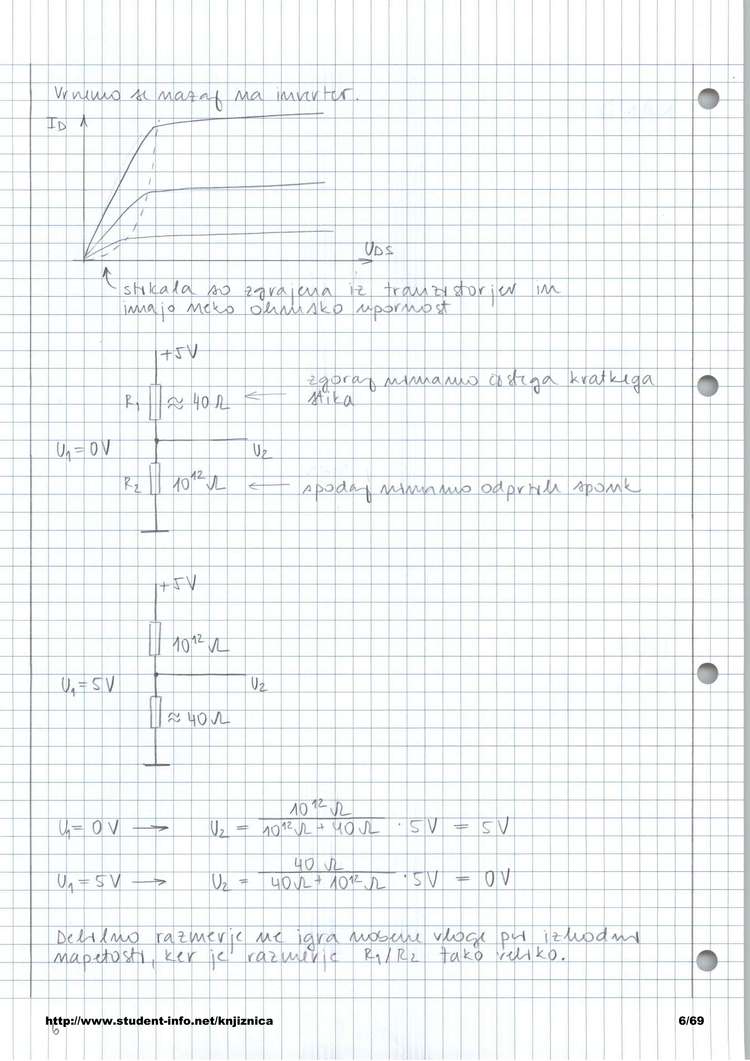 Vrnemo se nazaj na inverter.
I_D
U_DS
stikala so zgrajena iz tranzistorjev in
imajo neko ohmsko upornost
+5V
R₁ ≈ 40Ω ← zgoraj nimamo čistega kratkega
stika
U₁ = 0V U₂
R₂ 10¹² Ω ← spodaj nimamo odprtih sponk
+5V
10¹² Ω
U₁ = 5V U₂
≈ 40Ω
U₁ = 0V → U₂ = 10¹² Ω / (10¹² Ω + 40Ω) · 5V = 5V
U₁ = 5V → U₂ = 40 Ω / (40Ω + 10¹² Ω) · 5V = 0V
Delilno razmerje ne igra nobene vloge pri izhodni
napetosti, ker je razmerje R₁/R₂ tako veliko.
http://www.student-info.net/knjiznica 6/69
6